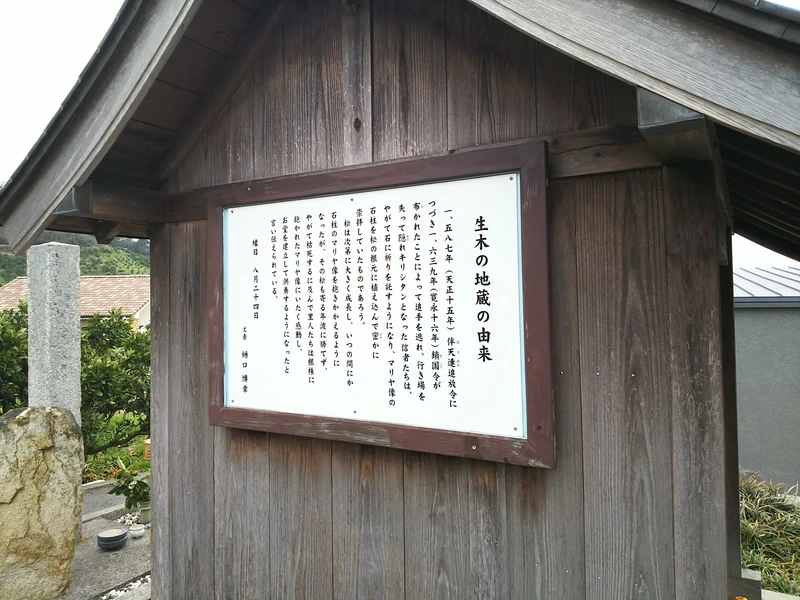 生木の地蔵の由来
一、五八七年（天正十五年）伴天連追放令に
つづき一、六三九年（寛永十六年）鎖国令が
布かれたことによって追手を逃れ、行き場を
失って隠れキリシタンとなった信者たちは、
やがて石に祈りを託すようになり、マリヤ像の
石柱を松の根元に植え込んで密かに
崇拝していたものであろう。
松は次第に大きく成長し、いつの間にか
石柱のマリヤ像を抱きかかえるように
なったが、その松も寄る年波に勝てず、
やがて枯死するに及んで里人たちは根株に
抱かれたマリヤ像にいたく感動し、
お堂を建立して供養するようになったと
言い伝えられている。
縁日 八月二十四日
文責 樋口 博幸